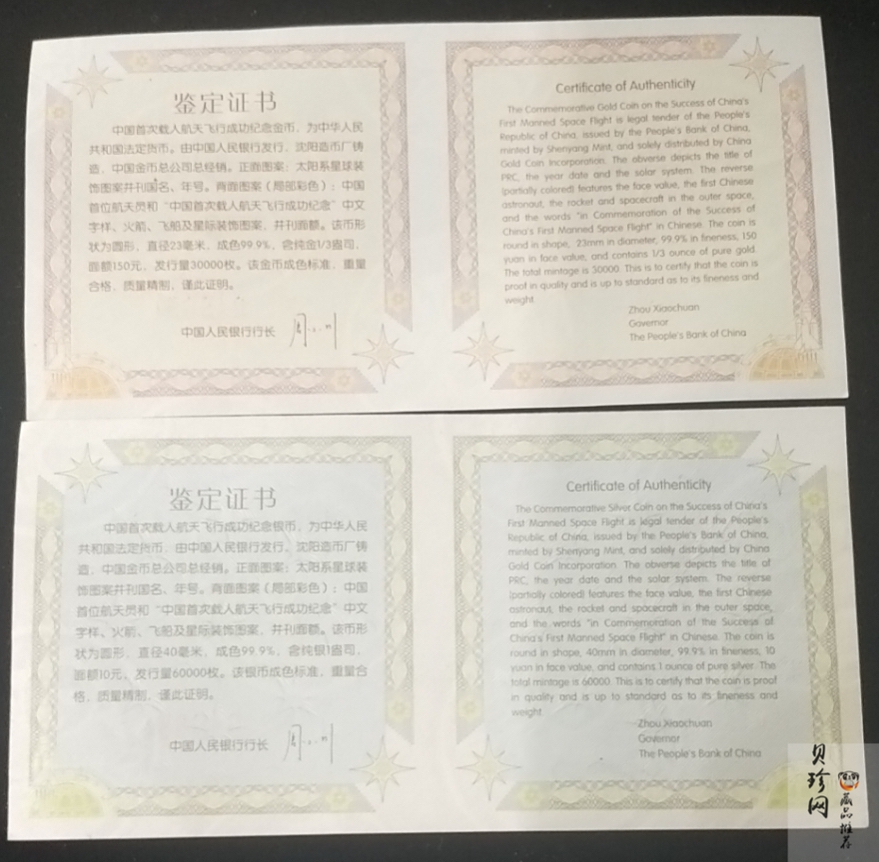 鉴定证书
中国首次载人航天飞行成功纪念金币，为中华人民
共和国法定货币。由中国人民银行发行，沈阳造币厂铸
造，中国金币总公司总经销。正面图案：太阳系星球装
饰图案并刊国名、年号。背面图案（局部彩色）：中国
首位航天员和“中国首次载人航天飞行成功纪念”中文
字样、火箭、飞船及星际装饰图案，并刊面额。该币形
状为圆形，直径23毫米，成色99.9%，含纯金1/3盎司，
面额150元，发行量30000枚。该金币成色标准，重量
合格，质量精制，谨此证明。
中国人民银行行长
Certificate of Authenticity
The Commemorative Gold Coin on the Success of China's
First Manned Space Flight is legal tender of the People's
Republic of China, issued by the People's Bank of China,
minted by Shenyang Mint, and solely distributed by China
Gold Coin Incorporation. The obverse depicts the title of
PRC, the year date and the solar system. The reverse
(partially colored) features the face value, the first Chinese
astronaut, the rocket and spacecraft in the outer space,
and the words "in Commemoration of the Success of
China's First Manned Space Flight" in Chinese. The coin is
round in shape, 23mm in diameter, 99.9% in fineness, 150
yuan in face value, and contains 1/3 ounce of pure gold.
The total mintage is 30000. This is to certify that the coin is
proof in quality and is up to standard as to its fineness and
weight.
Zhou Xiaochuan
Governor
The People's Bank of China
鉴定证书
中国首次载人航天飞行成功纪念银币，为中华人民
共和国法定货币，由中国人民银行发行、沈阳造币厂铸
造，中国金币总公司总经销。正面图案：太阳系星球装
饰图案并刊国名、年号。背面图案（局部彩色）：中国
首位航天员和“中国首次载人航天飞行成功纪念”中文
字样、火箭、飞船及星际装饰图案，并刊面额。该币形
状为圆形，直径40毫米，成色99.9%，含纯银1盎司，
面额10元、发行量60000枚。该银币成色标准，重量合
格，质量精制，谨此证明。
中国人民银行行长
Certificate of Authenticity
The Commemorative Silver Coin on the Success of China's
First Manned Space Flight is legal tender of the People's
Republic of China, issued by the People's Bank of China,
minted by Shenyang Mint, and solely distributed by China
Gold Coin Incorporation. The obverse depicts the title of
PRC, the year date and the solar system. The reverse
(partially colored) features the face value, the first Chinese
astronaut, the rocket and spacecraft in the outer space,
and the words "in Commemoration of the Success of
China's First Manned Space Flight" in Chinese. The coin is
round in shape, 40mm in diameter, 99.9% in fineness, 10
yuan in face value, and contains 1 ounce of pure silver. The
total mintage is 60000. This is to certify that the coin is proof
in quality and is up to standard as to its fineness and
weight.
Zhou Xiaochuan
Governor
The People's Bank of China
贝珍网
藏品推荐